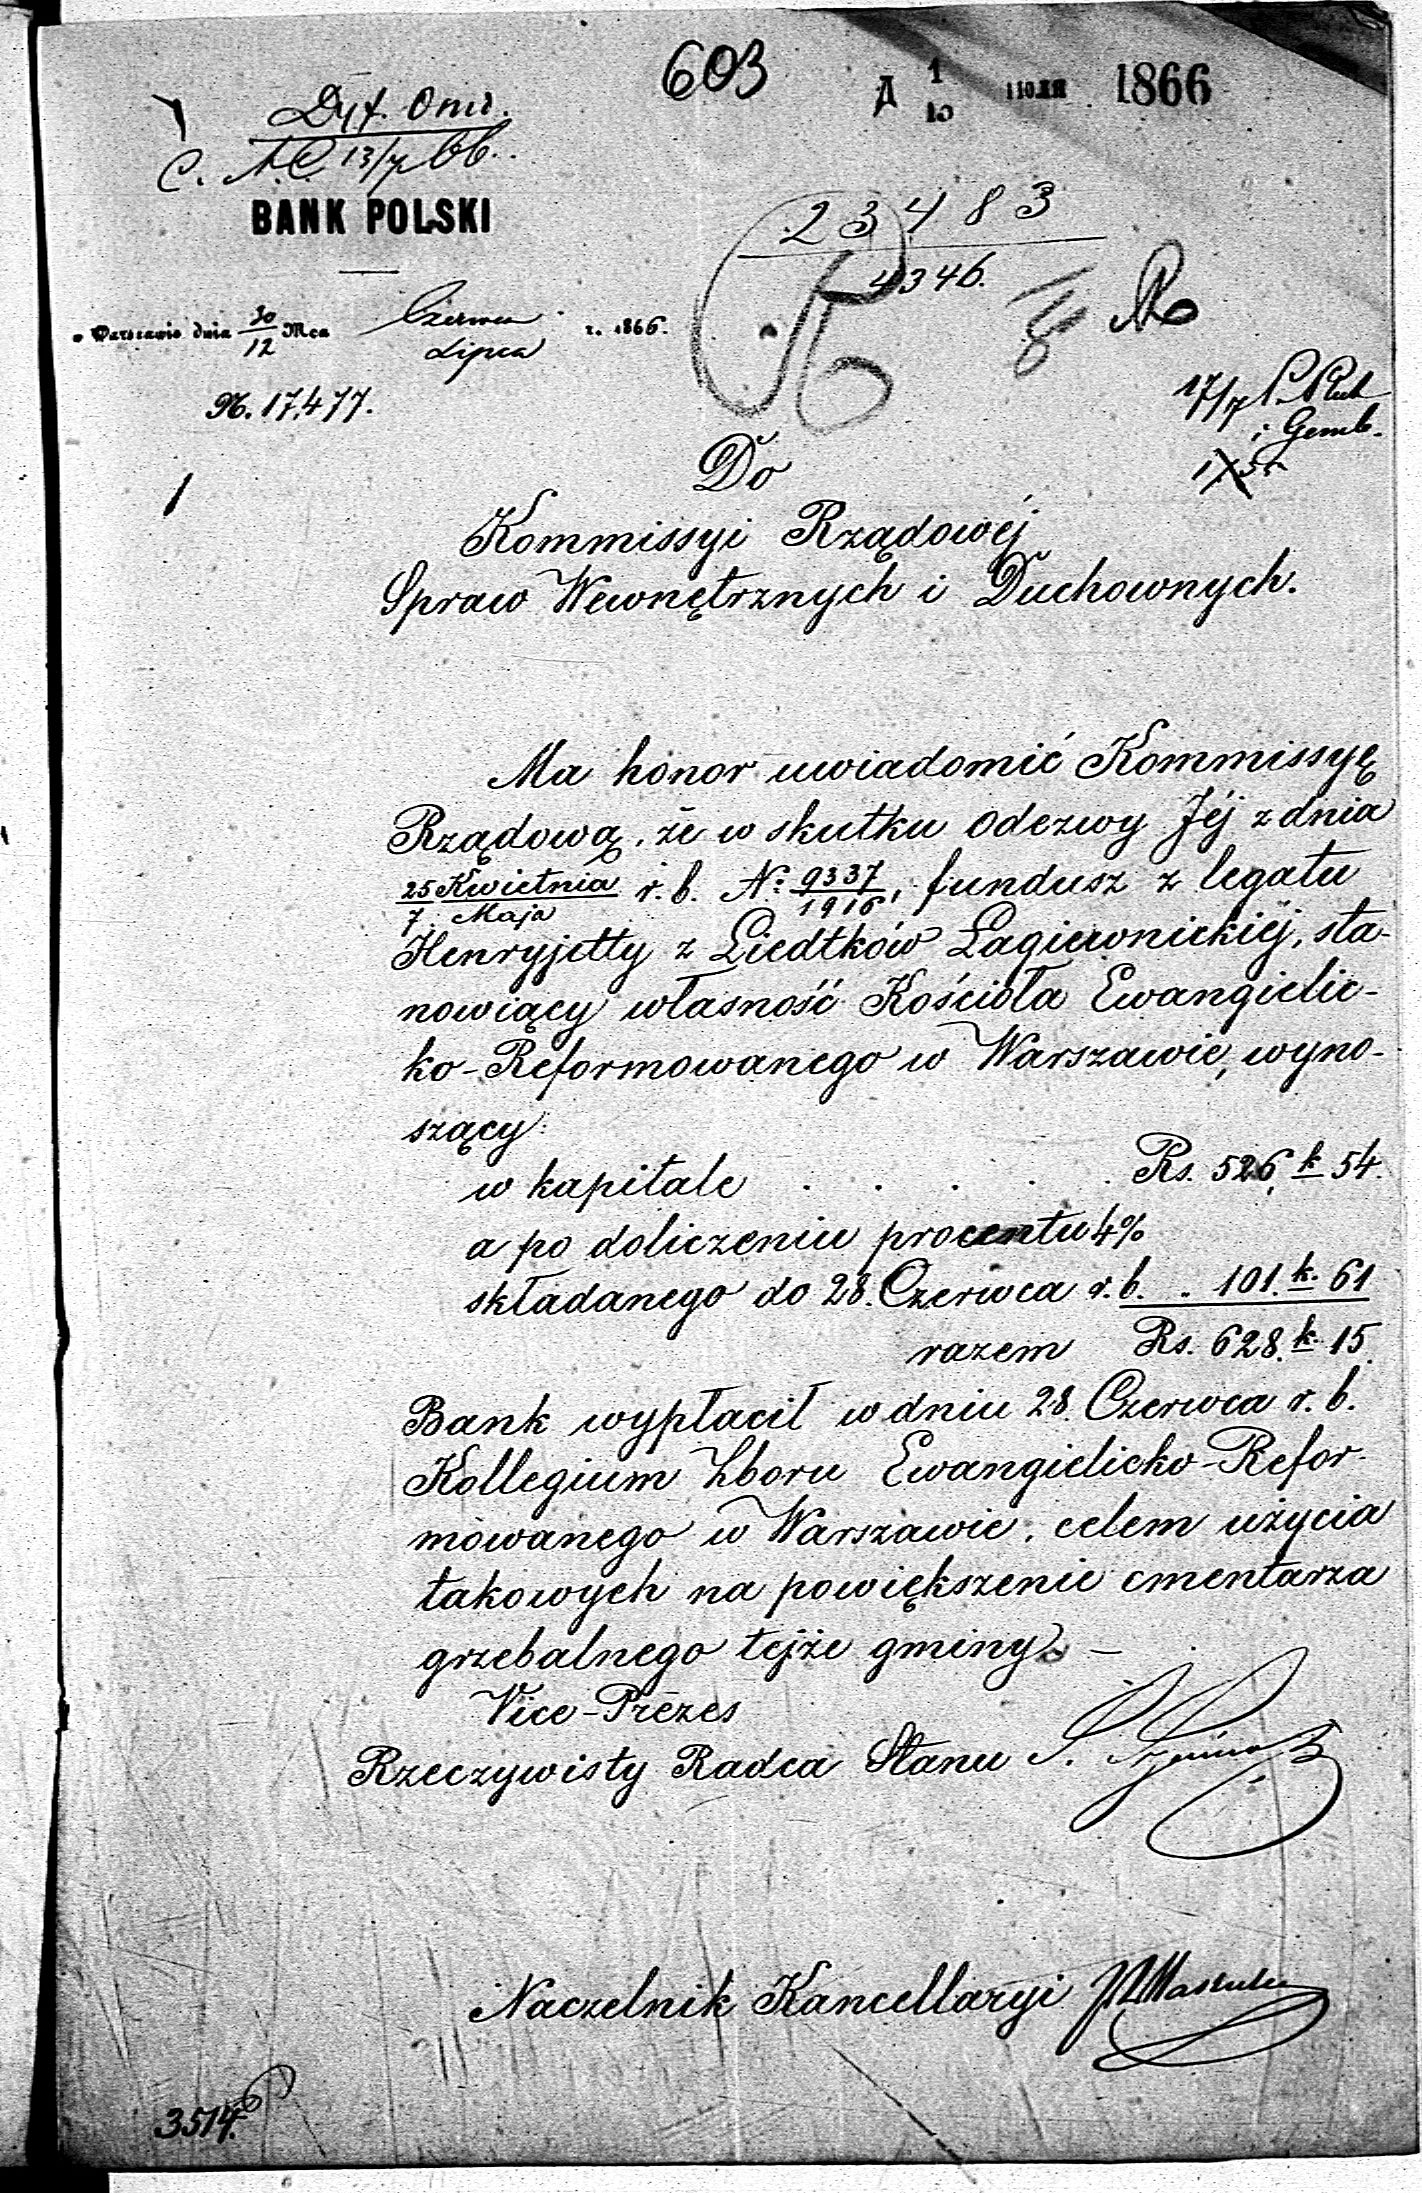 603
Д 1/13 ІЮЛЯ 1866
C. 13/7 66.
BANK POLSKI
23483
4346.
w Warszawie dnia 30/12 Mca Czerwca/Lipca r. 1866.
N. 17,477.
17/7
i Gemb.
Do
Kommissyi Rządowéj
Spraw Wewnętrznych i Duchownych.
Ma honor uwiadomić Kommissyę
Rządową, że w skutku odezwy Jéj z dnia
25 Kwietnia/7 Maja r. b. No 9337/1916, fundusz z legatu
Henryjetty z Liedtków Łagiewnickiéj, sta-
nowiący własność Kościoła Ewangielic-
ko-Reformowanego w Warszawie, wyno-
szący:
w kapitale . . . . . Rs. 526, k 54.
a po doliczeniu procentu 4%
składanego do 28. Czerwca r. b. . 101. k. 61
razem Rs. 628. k. 15.
Bank wypłacił w dniu 28. Czerwca r. b.
Kollegium Zboru Ewangielicko-Refor-
mowanego w Warszawie, celem użycia
takowych na powiększenie cmentarza
grzebalnego tejże gminy. —
Vice-Prezes
Rzeczywisty Radca Stanu
Naczelnik Kancellaryi
3514.